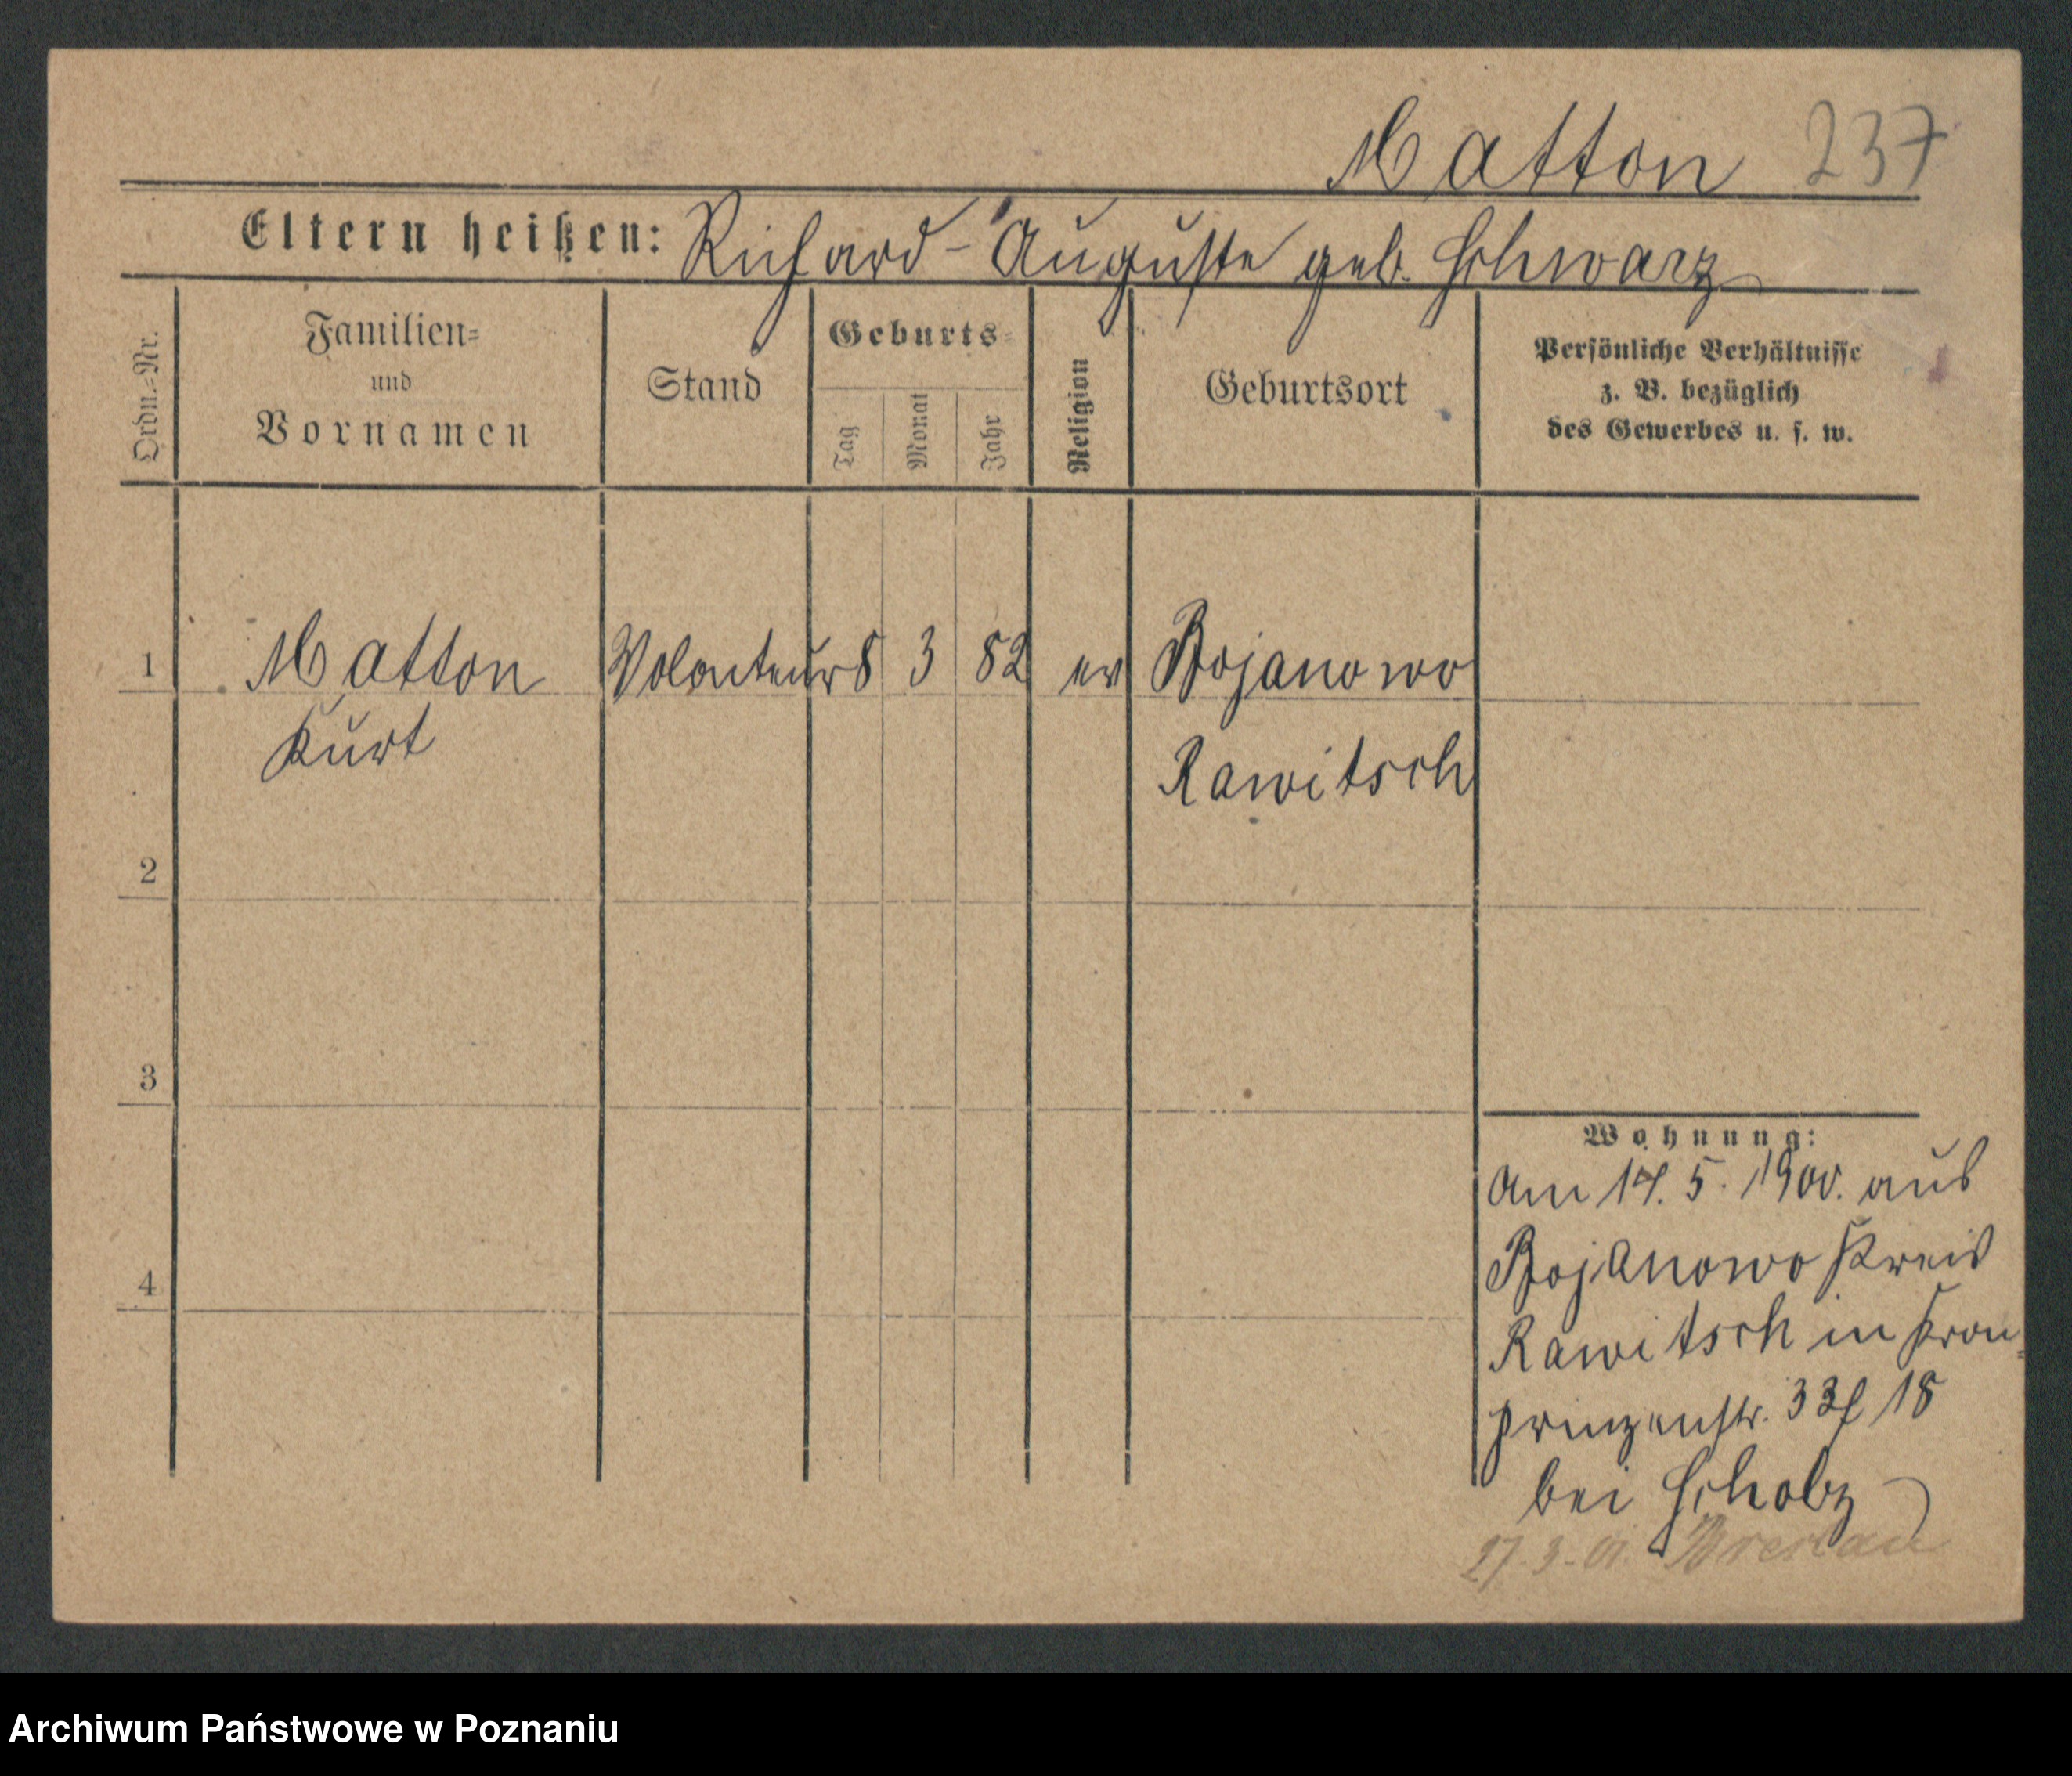 Matton 237
Eltern heißen: Richard - Auguste geb. Schwarz
Ordn.=Nr.
Familien=
und
Vornamen
Stand
Geburts=
Tag
Monat
Jahr
Religion
Geburtsort
Persönliche Verhältnisse
z. B. bezüglich
des Gewerbes u. s. w.
1 Matton Volonteur 8 3 82 ev Bojanowo
Kurt Rawitsch
2
3
4
Wohnung:
Am 14. 5. 1900. aus
Bojanowo Kreis
Rawitsch in Kron=
prinzenstr. 33f 18
bei Scholz
27.3.01. Breslau
Archiwum Państwowe w Poznaniu